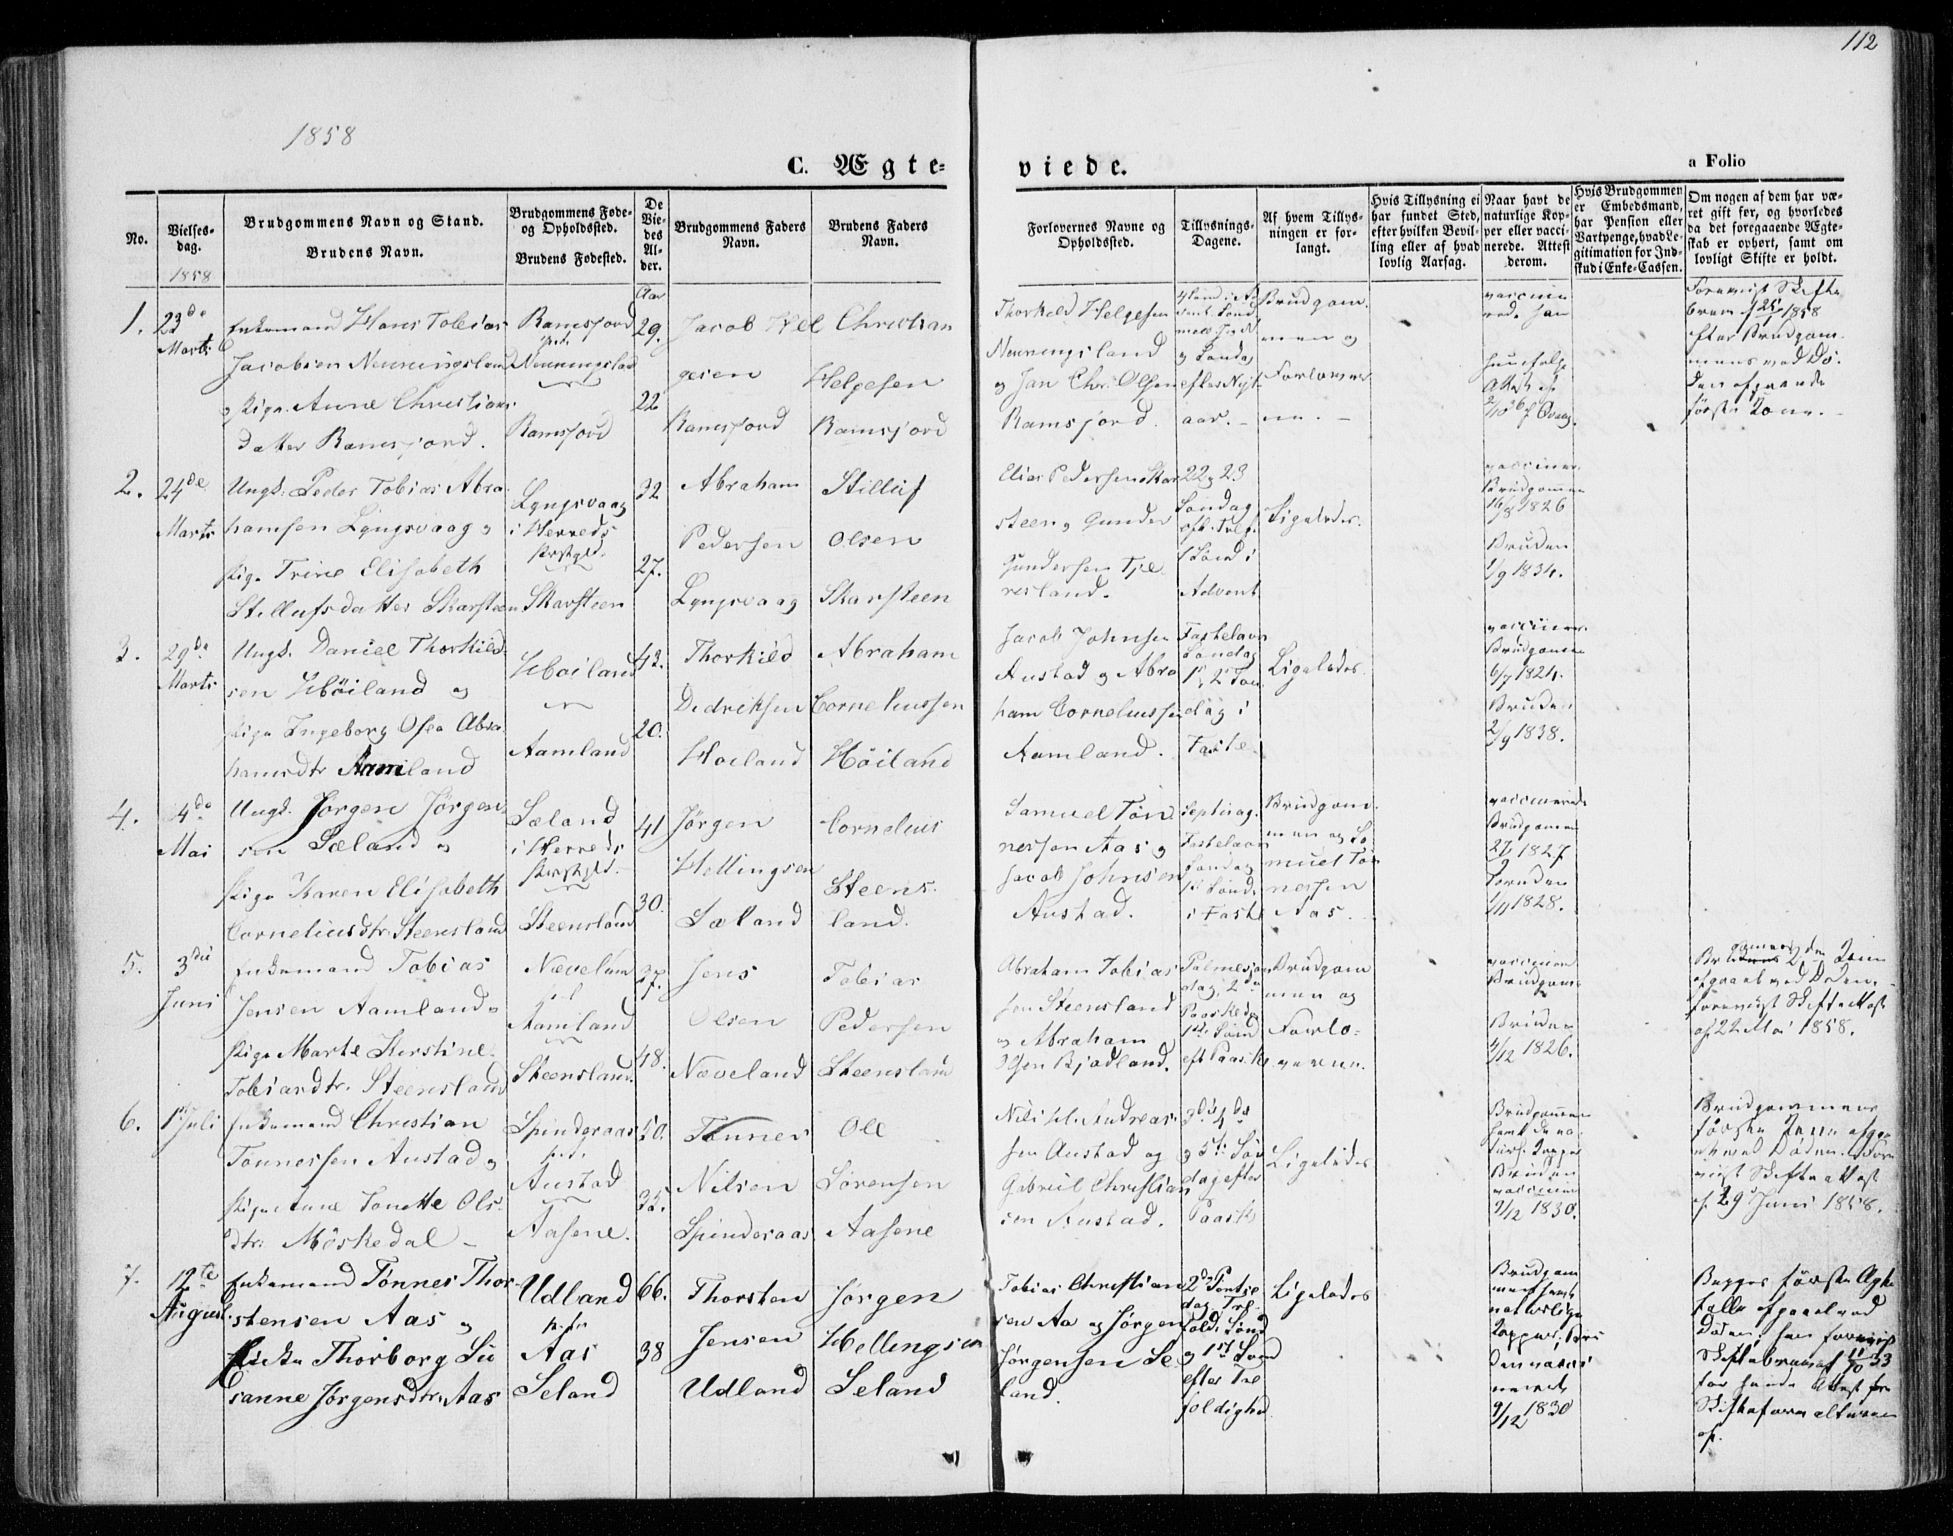 112
1858
C. Ægte-
viede.
a Folio
No.
Vielses-
dag.
1858
Brudgommens Navn og Stand.
Brudens Navn.
Brudgommens Føde-
og Opholdssted.
Brudens Fødested.
De
Vie-
des
Al-
der.
Aar
Brudgommens Faders
Navn.
Brudens Faders
Navn.
Forlovernes Navne og
Opholdssted.
Tillysnings-
Dagene.
Af hvem Tillys-
ningen er for-
langt.
Hvis Tillysning ei
har fundet Sted,
efter hvilken Bevil-
ling eller af hvad
lovlig Aarsag.
Naar havt de
naturlige Kop-
per eller vacci-
nerede. Attest
derom.
Hvis Brudgommen
er Embedsmand,
har Pension eller
Vartpenge, hvad Le-
gitimation for Ind-
skud i Enke-Cassen.
Om nogen af dem har væ-
ret gift før, og hvorledes
da det foregaaende Ægte-
skab er ophørt, samt om
lovligt Skifte er holdt.
1.
23de
Marts
Enkemand Hans Tobias
Jacobsen Nenningsland
og Pige Anne Christians
datter Ramsfjord.
Ramsfjord
Nenningsland
Ramsfjord
29.
22
Jacob Hel
gesen
Ramsfjord
Christian
Helgesen
Ramsfjord
Thorkild Helgesen
Nenningsland
og Jan Chr. Olsen
Ramsfjord.
og Søndag
efter Nyt
aar. -
Brudgom
men og
Forlover
ne. -
første Kone. -
2.
24de
Marts
Ungk. Peder Tobias Abra
hamsen Lyngsvaag og
Pige Trine Elisabeth
Stillufsdatter Skarsteen
Lyngsvaag
i Herreds
Skarsteen
32
27.
Abraham
Pedersen
Lyngsvaag
Stilluf
Olsen
Skarsteen
Elias Pedersen Skar
steen og Gunder
Gundersen Tje
resland.
22 og 23
Søndag
1 Sønd i
Advent
Ligeledes.
Brudgommen
16/8 1826
Bruden
1/9 1834.
3.
29de
Marts
Ungk. Daniel Thorkild
sen Høiland og
Pige Ingeborg Osea Abra
hamsdtr Aamland
Høiland
Aamland
42.
20.
Thorkild
Didriksen
Høiland
Abraham
Corneliussen
Høiland
Jacob Johnsen
Austad og Abra
ham Corneliussen
Aamland.
Fastelavn
Søndag
1 og 2 Søn
dag i
Faste.
Ligeledes
Brudgommen
6/7 1824.
Bruden
2/9 1838.
4.
4de
Mai
Ungk. Jørgen Jørgen
sen Sæland og
Pige Karen Elisabeth
Corneliusdtr. Steensland
Sæland
i Herreds
Steensland
41
30.
Jørgen
Hellingsen
Sæland
Cornelius
Steens
land.
Samuel Tøn
nessen Aas og
Jacob Johnsen
Austad.
Septuag.
Fastelavn
Søndag
1ste Sønd.
i Faste
Brudgom
men og Sa
muel Tøn
nessen
Aas.
vaccinerede
Brudgommen
1827
Bruden
1828.
5.
3die
Juni
Enkemand Tobias
Jensen Aamland og
Pige Marte Kirstine
Tobiasdtr. Steensland
Nævelan
Aamland
Steensland.
37.
48.
Jens
Olsen
Næveland
Tobias
Pedersen
Steensland
Abraham Tobias
sen Steensland
og Abraham
Bjodland.
Palmesøn
dag, 2den
Paaskedag
1ste Sønd
eft Paaske
Brudgom
men og
Forlo
verne.
Bruden
4/12 1826.
afgaaet ved Døden,
forevist Skifteattest
af 22 Mai 1858.
6.
1 Juli
Enkemand Christian
Tønnessen Austad og
Pige Anne Tonette Ols
dtr. Møskedal -
Spinderaas
Austad
Aasene.
50.
35.
Tønnes
Nilsen
Spinderaas
Ole
Sørensen
Aasene
Nils H. Andreas
sen Austad og
Gabriel Christian
sen Austad.
3die 4de
og 5te Søn
dag efter
Paaske
Ligeledes
Brudgommen
Bruden
9/12 1830.
Brudgommens
første Kone afgaa
et ved Døden. Fore
vist Skifteattest
af 29 Juni 1858.
7.
12te
August
Enkemand Tønnes Thor
stensen Aas og
Enke Thorborg Su
sanne Jørgensdtr. Aas
Udland
Aas
Seland
66.
38
Thorsten
Jensen
Udland
Jørgen
Hellingsen
Seland
Tobias Christian
sen Aa og Jørgen
Jørgensen Se
land.
2den Pintse
dag, Tre
fold. Sønd
og 1ste Sønd
efter Tre
foldighed
Ligeledes
Brudgom
naturlige
Kopper, Bru
9/12 1830
Begges første Ægte
fælle afgaaet ved
Døden;